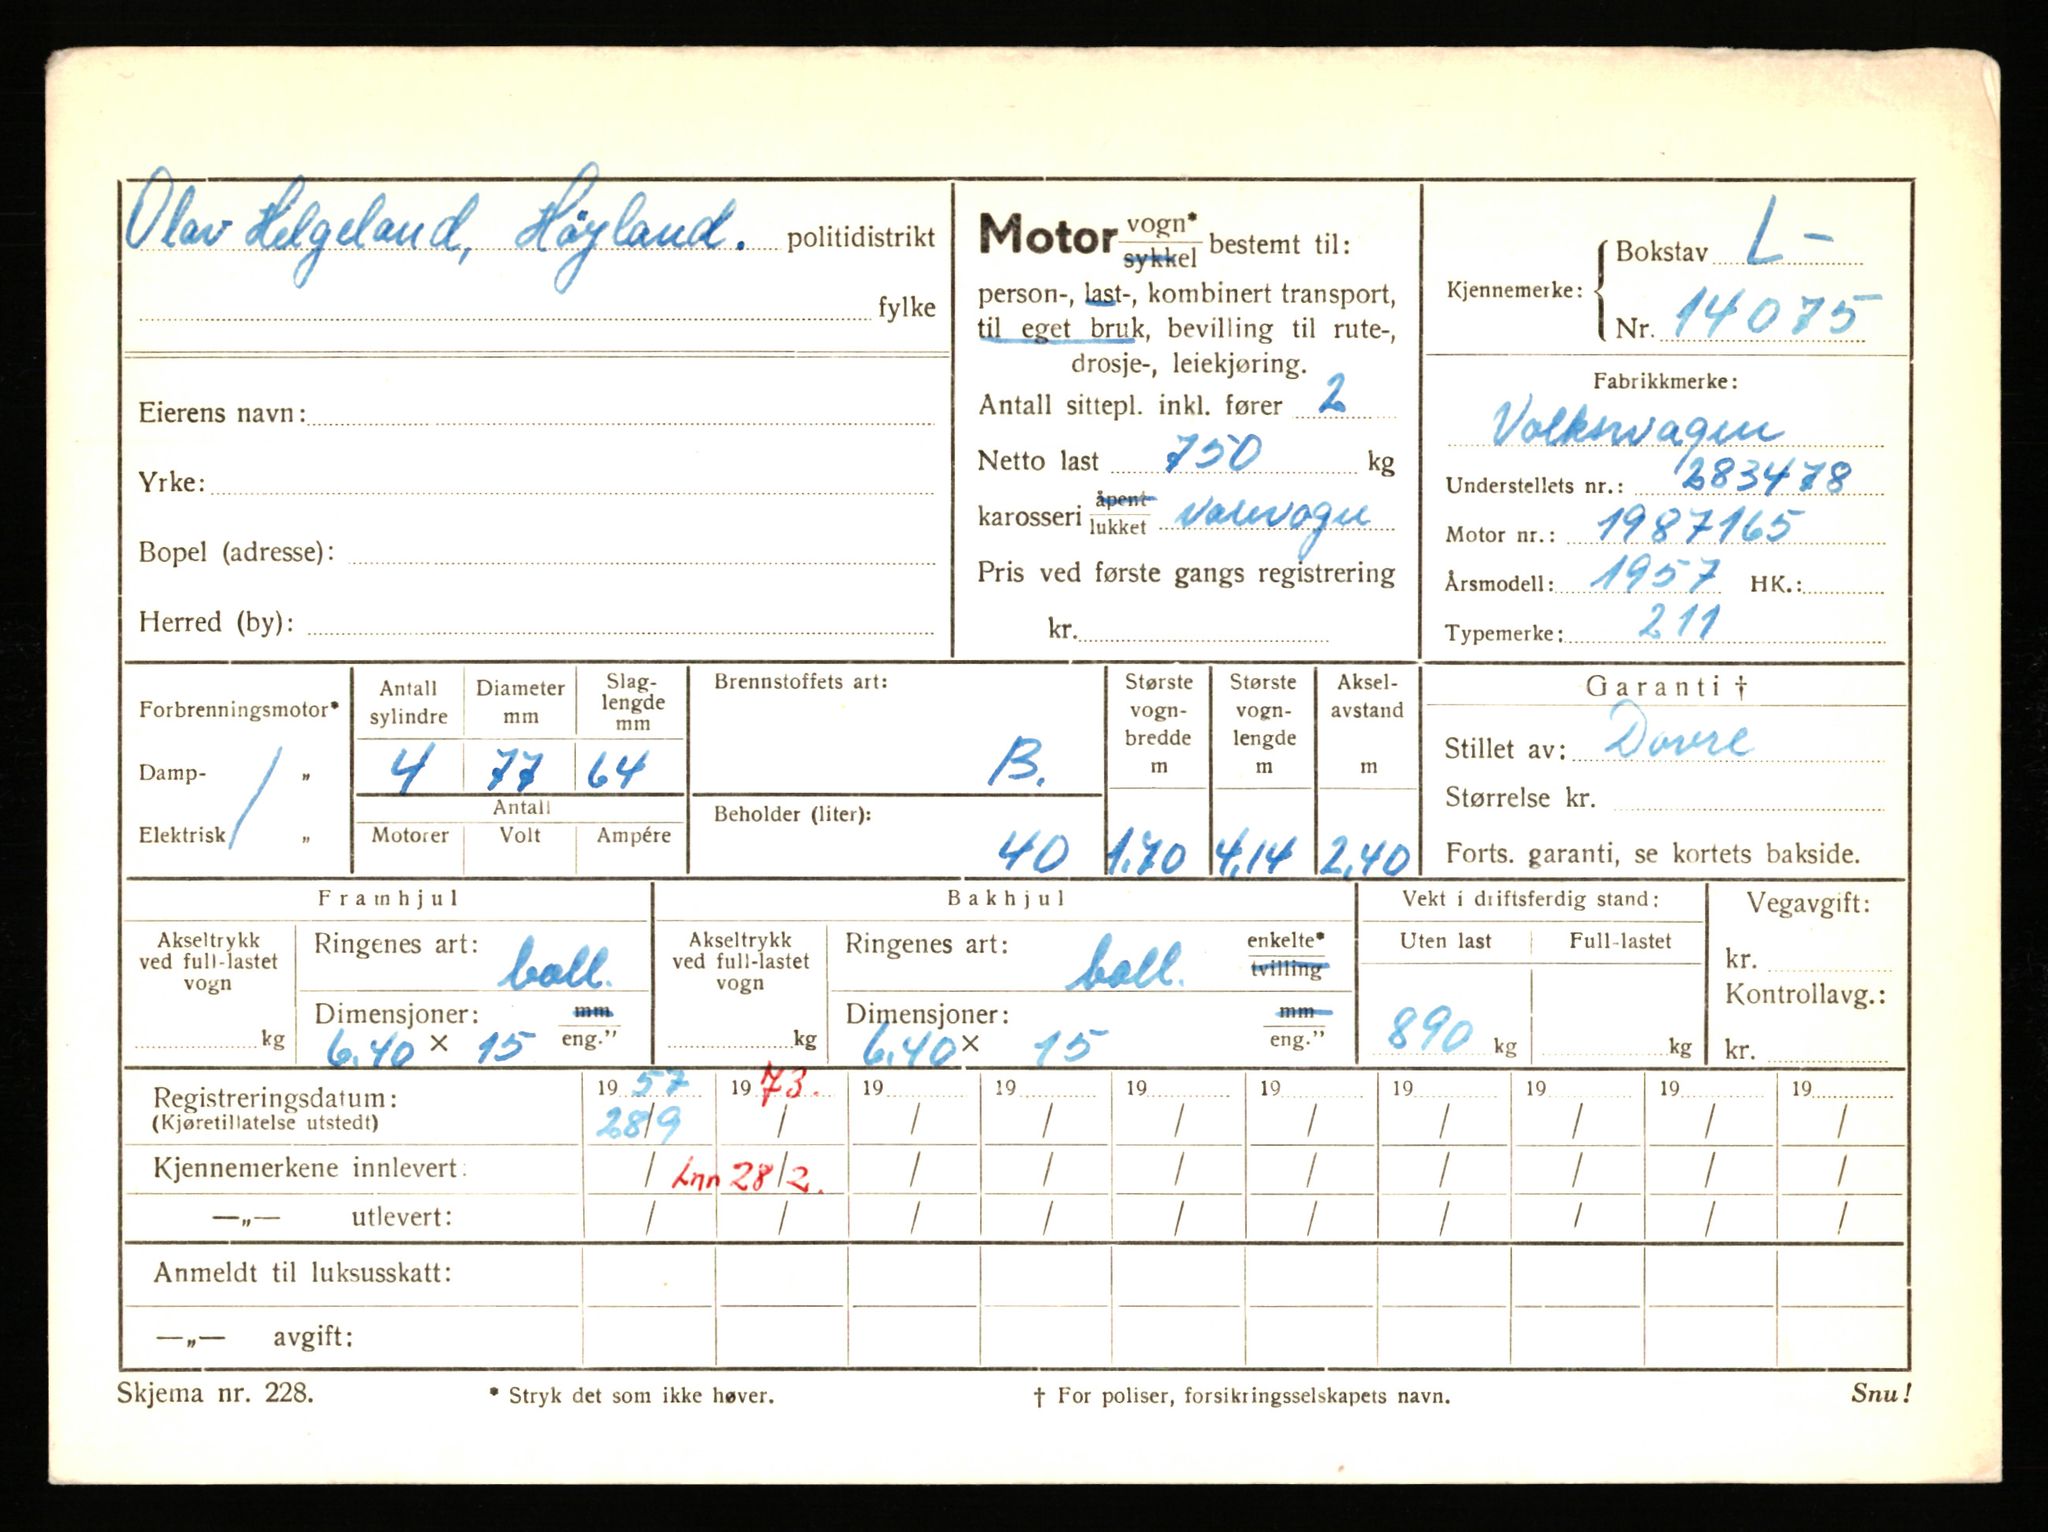 Olav Helgeland, Høyland. politidistrikt
fylke
Eierens navn:
Yrke:
Bopel (adresse):
Herred (by):
Motor vogn* sykkel bestemt til:
person-, last-, kombinert transport,
til eget bruk, bevilling til rute-,
drosje-, leiekjøring.
Antall sittepl. inkl. fører 2
Netto last 750 kg
karosseri åpent lukket varevogn
Pris ved første gangs registrering
kr.
Kjennemerke: Bokstav L-
Nr. 14075
Fabrikkmerke:
Volkswagen
Understellets nr.: 283478
Motor nr.: 1987165
Årsmodell: 1957 HK.:
Typemerke: 211
Forbrenningsmotor*
Damp- „
Elektrisk „
Antall sylindre Diameter mm Slaglengde mm
4 77 64
Antall
Motorer Volt Ampére
Brennstoffets art:
B.
Beholder (liter):
40
Største vognbredde m
1.70
Største vognlengde m
4,14
Akselavstand m
2,40
Garanti †
Stillet av: Dovre
Størrelse kr.
Forts. garanti, se kortets bakside.
Framhjul
Akseltrykk ved full-lastet vogn
kg
Ringenes art: ball.
Dimensjoner: mm eng."
6.40 × 15
Bakhjul
Akseltrykk ved full-lastet vogn
kg
Ringenes art: ball. enkelte* tvilling
Dimensjoner: mm eng."
6.40 × 15
Vekt i driftsferdig stand:
Uten last Full-lastet
890 kg kg
Vegavgift:
kr.
Kontrollavg.:
kr.
Registreringsdatum: 19 57 19 73. 19 19 19 19 19 19 19 19
(Kjøretillatelse utstedt) 28/9 / / / / / / / / /
Kjennemerkene innlevert: / Inn 28/2. / / / / / / / /
—„— utlevert: / / / / / / / / / /
Anmeldt til luksusskatt:
—„— avgift:
Skjema nr. 228. * Stryk det som ikke høver. † For poliser, forsikringsselskapets navn. Snu!